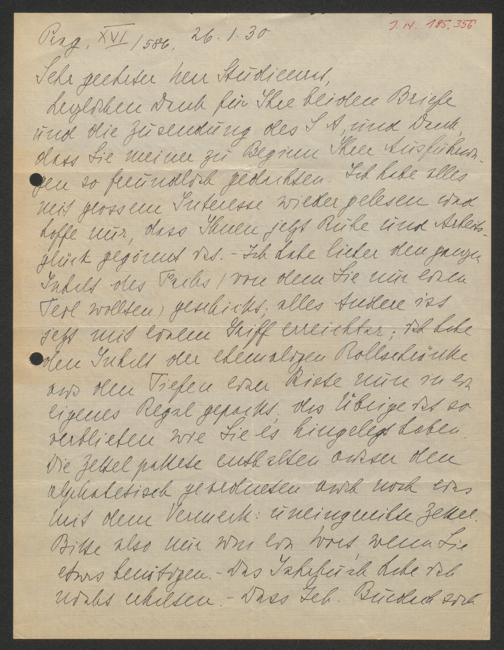 Prag, XVI/586, 26.1.30
I.N. 185.356
Sehr geehrter Herr Studienrat,
herzlichen Dank für Ihre beiden Briefe
und die Zusendung des S A, und Dank,
dass Sie meiner zu Beginn Ihrer Ausführun-
gen so freundlich gedachten. Ich habe alles
mit grossem Interesse wieder gelesen und
hoffe nur, dass Ihnen jetzt Ruhe und Arbeits-
glück gegönnt ist. - Ich habe lieber den ganzen
Inhalt des Fachs (von dem Sie nur einen
Teil wollten) geschickt; alles Andere ist
jetzt mit einem Griff erreichbar; ich habe
den Inhalt der ehemaligen Rollschränke
aus den Tiefen einer Kiste nun in ein
eigenes Regal gepackt, das Übrige ist so
verblieben wie Sie es hingelegt haben.
Die Zettelpakete enthalten ausser den
alphabetisch geordneten auch noch eins
mit dem Vermerk: uneingereihte Zettel.
Bitte also nur um ein Wort, wenn Sie
etwas benötigen. - Das Jahrbuch habe ich
nicht erhalten. - Dass Jch. sich